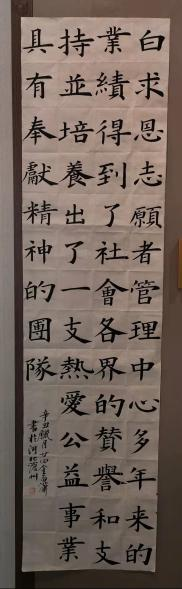 白求恩志願者管理中心多年来的
業績得到了社會各界的贊譽和支
持並培養出了一支熱愛公益事業
具有奉獻精神的團隊
辛丑臘月廿四金惠
書於河北滄州